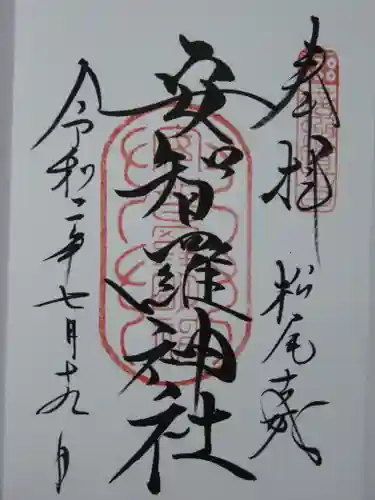 奉拝
松尾古城
安智羅神社
令和二年七月十九日